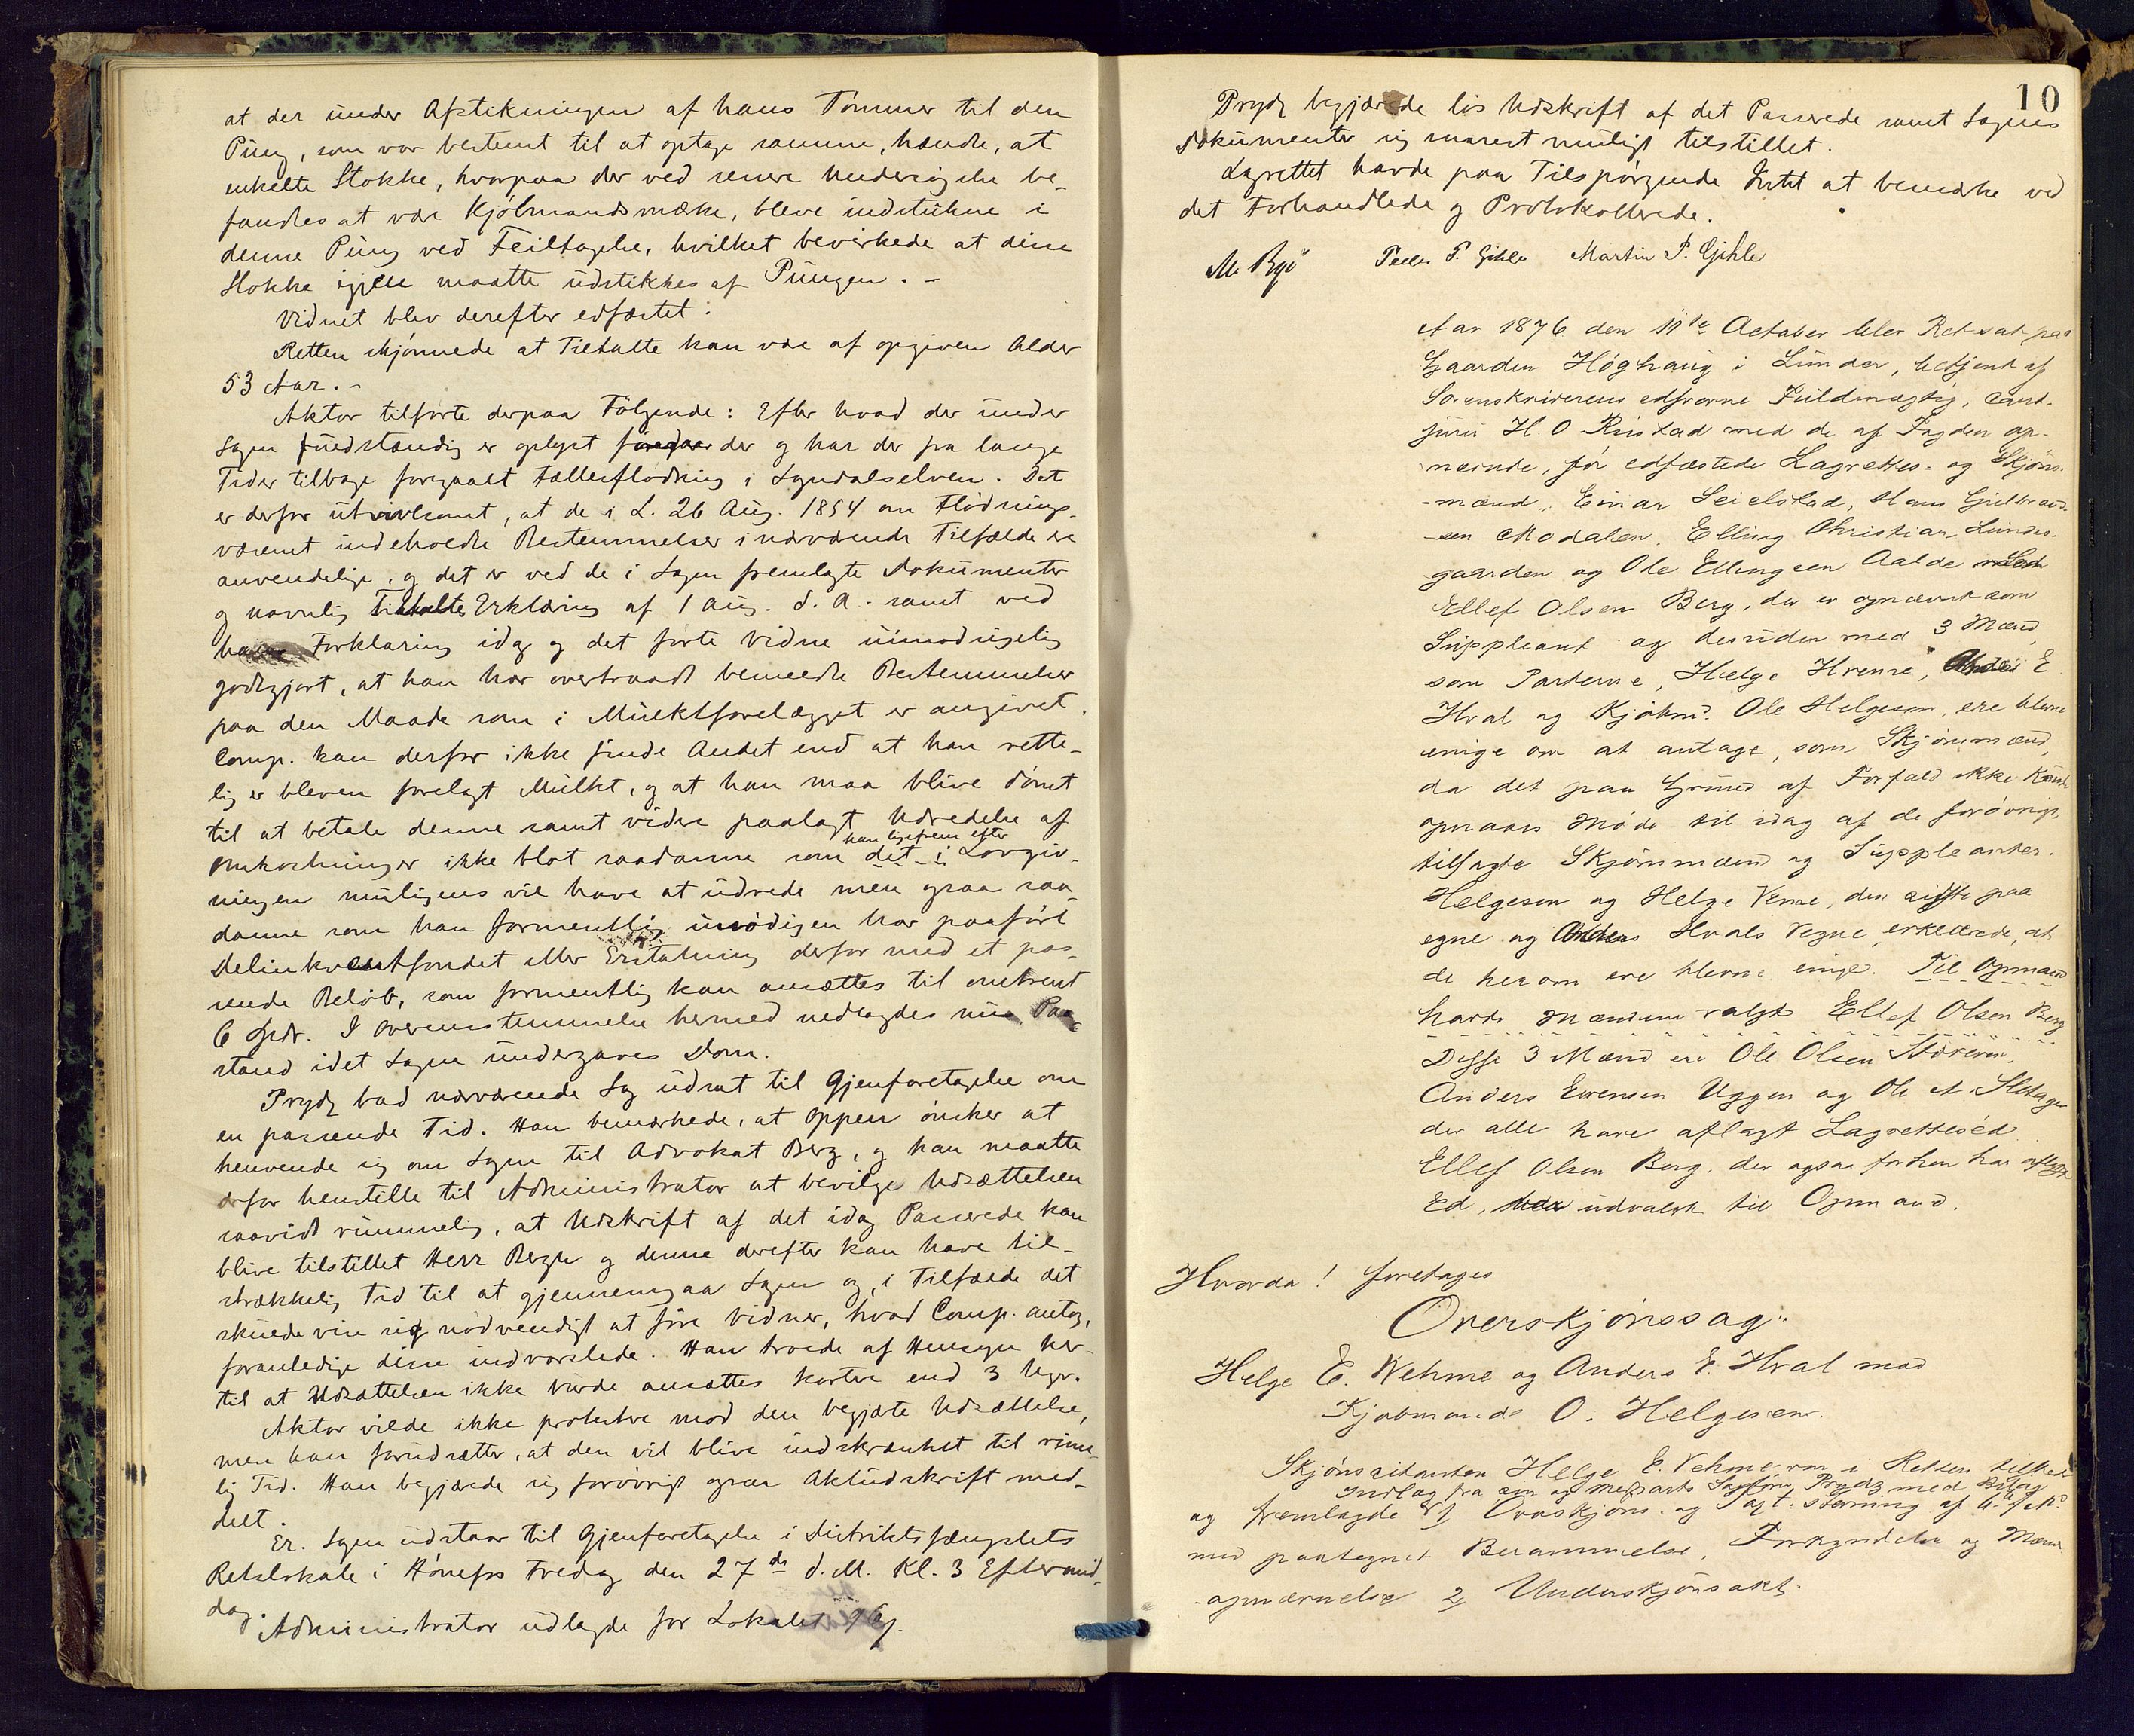 at der under Afstikningen af hans Tømmer til den
Pung, som var bestemt til at optage samme, hændte, at
enkelte Stokke, hvorpaa der ved senere Undersøgelse be-
fandtes at være Kjøbmandsmærke, bleve indstukne i
denne Pung ved Feiltagelse, hvilket bevirkede at disse
Stokke igjen maatte udstikkes af Pungen. -
Vidnet blev derefter edfæstet.
Retten skjønnede at Tiltalte kan være af opgiven Alder
53 Aar. -
Aktor tilførte derpaa Følgende: Efter hvad der under
Sagen fuldstændig er oplyst foregaar der og har der fra lange
Tider tilbage foregaaet Fællesflødning i Sogndalselven. Det
er derfor utvivlsomt, at de i L. 26 Aug. 1854 om Flødnings-
væsenet indeholdte Bestemmelser i nærværende Tilfælde er
anvendelige, og det er ved de i Sagen fremlagte Dokumenter
og navnlig Tiltaltes Erklæring af 1 Aug. d. A. samt ved
hans Forklaring idag og det førte Vidne uimodsigelig
godtgjort, at han har overtraadt bemeldte Bestemmelser
paa den Maade som i Mulktforelægget er angivet.
Comp. kan derfor ikke finde Andet end at han rette-
lig er bleven forelagt Mulkt, og at han maa blive dømt
til at betale denne samt videre paalagt Udredelse af
han ligefrem efter
Omkostninger ikke blot saadanne som det i Lovgiv-
ningen muligens vil have at udrede men ogsaa saa-
danne som han formentlig unødigen har paaført
Delinkventfondet eller Erstatning derfor med et pas-
sende Beløb, som formentlig kan ansættes til omtrent
6 Spdr. I Overensstemmelse hermed nedlagdes nu Paa-
stand idet Sagen undergaves Dom.
Prydz bad nærværende Sag udsat til Gjenforetagelse om
en passende Tid. Han bemærkede, at Oppen ønsker at
henvende sig om Sagen til Advokat Berg, og han maatte
derfor henstille til Administrator at bevilge Udsættelsen
saavidt rummelig, at Udskrift af det idag Passerede kan
blive tilstillet Herr Bergh og denne derefter kan have til-
strækkelig Tid til at gjennemgaa Sagen og, i Tilfælde det
skulde vise sig nødvendigt at føre Vidner, hvad Comp. antog,
foranledige disse indvarslede. Han troede af Hensyn her-
til at Udsættelsen ikke burde ansættes kortere end 3 Uger.
Aktor vilde ikke protestere mod den begjærte Udsættelse,
men han forudsætter, at den vil blive indskrænket til rime-
lig Tid. Han begjærede sig forøvrigt ogsaa Aktudskrift med-
delt.
Er. Sagen udstaar til Gjenforetagelse i Distriktsfængslets
Retslokale i Hønefos Fredag den 27de d. M. Kl. 3 Eftermid-
dag.
Administrator udlagde for Lokalet
10
Prydz begjærede løs Udskrift af det Passerede samt Sagens
Dokumenter sig snarest muligt tilstillet.
Lagrettet havde paa Tilspørgende Intet at bemærke ved
det Forhandlede og Protokollerede.
Peder P. Gihle Martin P. Gihle
Aar 1876 den 11te October blev Ret sat paa
Gaarden Høghaug i Lunder, betjent af
Sorenskriverens edsvorne Fuldmægtig, Cand.
juris H. O Rustad med de af Fogden op-
nævnte, før edfæstede Lagrettes- og Skjøns-
-mænd, Einar Seielstad, Hans Gulbrand-
-sen Modalen, Elling Christian Lunds-
gaarden og Ole Ellingsen Aalde
Ellef Olsen Berg, der er opnævnt som
Suppleant og desuden med 3 Mænd,
som Parterne, Helge Hveme, E
Hval og Kjøbmd. Ole Helgesen, ere blevne
enige om at antage, som Skjønsmænd,
da det paa Grund af Forfald ikke kunde
opnaaes Møde til idag af de forøvrigt
tilsagte Skjønsmænd og Suppleanter.
Helgesen og Helge Veme, den sidste paa
egne og Anders Hvals Vegne erklærede, at
de herom ere blevne enige. Til Opmand
havde Mændene valgt Ellef Olsen Berg
Disse 3 Mænd ere Ole Olsen Støveren,
Anders Evensen Uggen og Ole A
der alle have aflagt Lagrettesed
Ellef Olsen Berg, der ogsaa forhen har aflagt
Ed, udvalgt til Opmand.
Hvorda! foretages
Overskjønssag:
Helge E. Wehme og Anders E. Hval mod
Kjøbmand O. Helgesen.
Skjønscitanten Helge E. Vehme var i Retten tilstede
Indlæg fra sin og Medparts Sagfører Prydz med Bilag
og fremlagde 1) Overskjøns- og Sagt. stævning af
med paategnet Berammelse, Forkyndelse og Mænds-
-opnævnelse 2) Underskjønsakt.